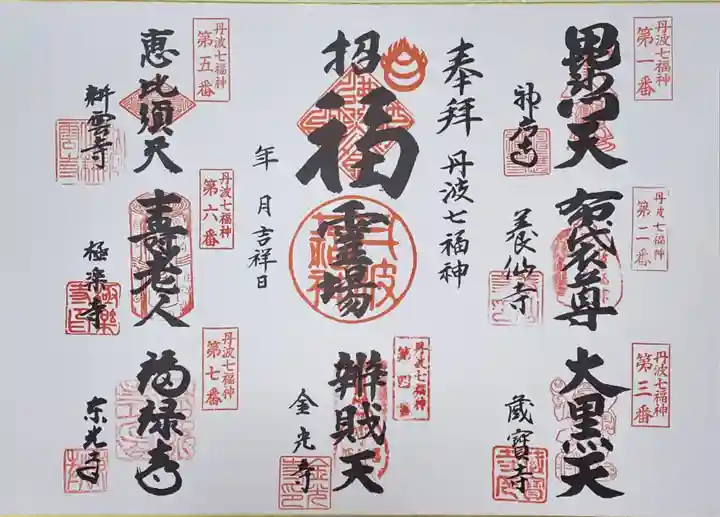 丹波七福神
第一番
毘沙門天
神応寺
丹波七福神
第二番
布袋尊
養仙寺
丹波七福神
第三番
大黒天
蔵寶寺
奉拝 丹波七福神
招福霊場
年 月吉祥日
丹波七福神
第四番
辨財天
金光寺
丹波七福神
第五番
恵比須天
耕雲寺
丹波七福神
第六番
壽老人
極楽寺
丹波七福神
第七番
福禄寿
東光寺